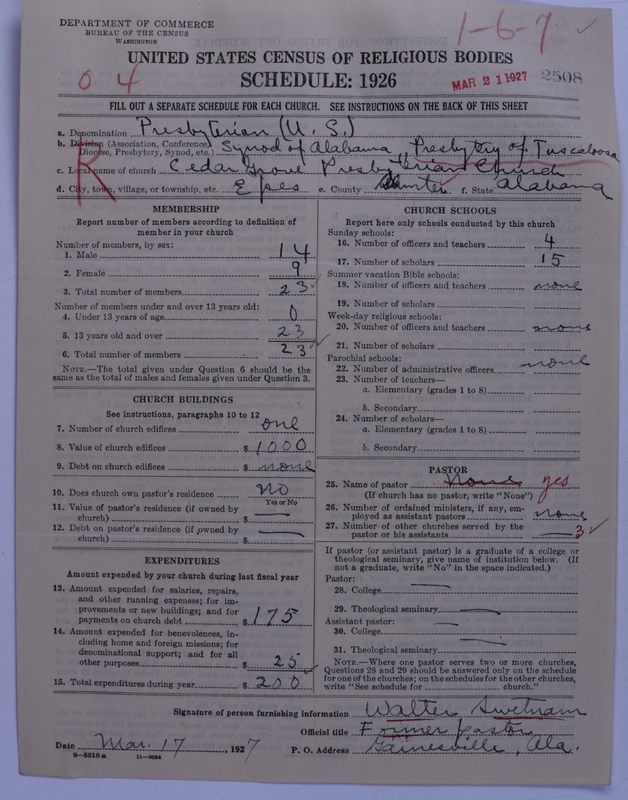 DEPARTMENT OF COMMERCE
BUREAU OF THE CENSUS
WASHINGTON
1-6-7
UNITED STATES CENSUS OF RELIGIOUS BODIES
SCHEDULE: 1926
0 4
MAR 21 1927
2508
FILL OUT A SEPARATE SCHEDULE FOR EACH CHURCH. SEE INSTRUCTIONS ON THE BACK OF THIS SHEET
R
a. Denomination Presbyterian (U. S.)
b. Division (Association, Conference, Diocese, Presbytery, Synod, etc.) Synod of Alabama, Presbytery of Tuscaloosa
c. Local name of church Cedar Grove Presbyterian Church
d. City, town, village, or township, etc. Epes e. County Sumter f. State Alabama
MEMBERSHIP
Report number of members according to definition of
member in your church
Number of members, by sex:
1. Male 14
2. Female 9
3. Total number of members 23
Number of members under and over 13 years old:
4. Under 13 years of age 0
5. 13 years old and over 23
6. Total number of members 23
NOTE.—The total given under Question 6 should be the
same as the total of males and females given under Question 3.
CHURCH BUILDINGS
See instructions, paragraphs 10 to 12
7. Number of church edifices one
8. Value of church edifices $ 1000
9. Debt on church edifices $ none
10. Does church own pastor's residence No
Yes or No
11. Value of pastor's residence (if owned by
church) $ —
12. Debt on pastor's residence (if owned by
church) $ —
EXPENDITURES
Amount expended by your church during last fiscal year
13. Amount expended for salaries, repairs,
and other running expenses; for im-
provements or new buildings; and for
payments on church debt $ 175
14. Amount expended for benevolences, in-
cluding home and foreign missions; for
denominational support; and for all
other purposes $ 25
15. Total expenditures during year $ 200
CHURCH SCHOOLS
Report here only schools conducted by this church
Sunday schools:
16. Number of officers and teachers 4
17. Number of scholars 15
Summer vacation Bible schools:
18. Number of officers and teachers none
19. Number of scholars
Week-day religious schools:
20. Number of officers and teachers none
21. Number of scholars
Parochial schools:
22. Number of administrative officers none
23. Number of teachers—
a. Elementary (grades 1 to 8)
b. Secondary
24. Number of scholars—
a. Elementary (grades 1 to 8)
b. Secondary
PASTOR
25. Name of pastor None yes
(If church has no pastor, write "None")
26. Number of ordained ministers, if any, em-
ployed as assistant pastors none
27. Number of other churches served by the
pastor or his assistants — 3
If pastor (or assistant pastor) is a graduate of a college or
theological seminary, give name of institution below. (If
not a graduate, write "No" in the space indicated.)
Pastor:
28. College —
29. Theological seminary —
Assistant pastor: —
30. College —
31. Theological seminary
NOTE.—Where one pastor serves two or more churches,
Questions 28 and 29 should be answered only on the schedule
for one of the churches; on the schedules for the other churches,
write "See schedule for church."
Signature of person furnishing information Walter Swetnam
Official title Former pastor
Date Mar. 17, 1927 P. O. Address Gainesville, Ala.
8—5518a 11—9084